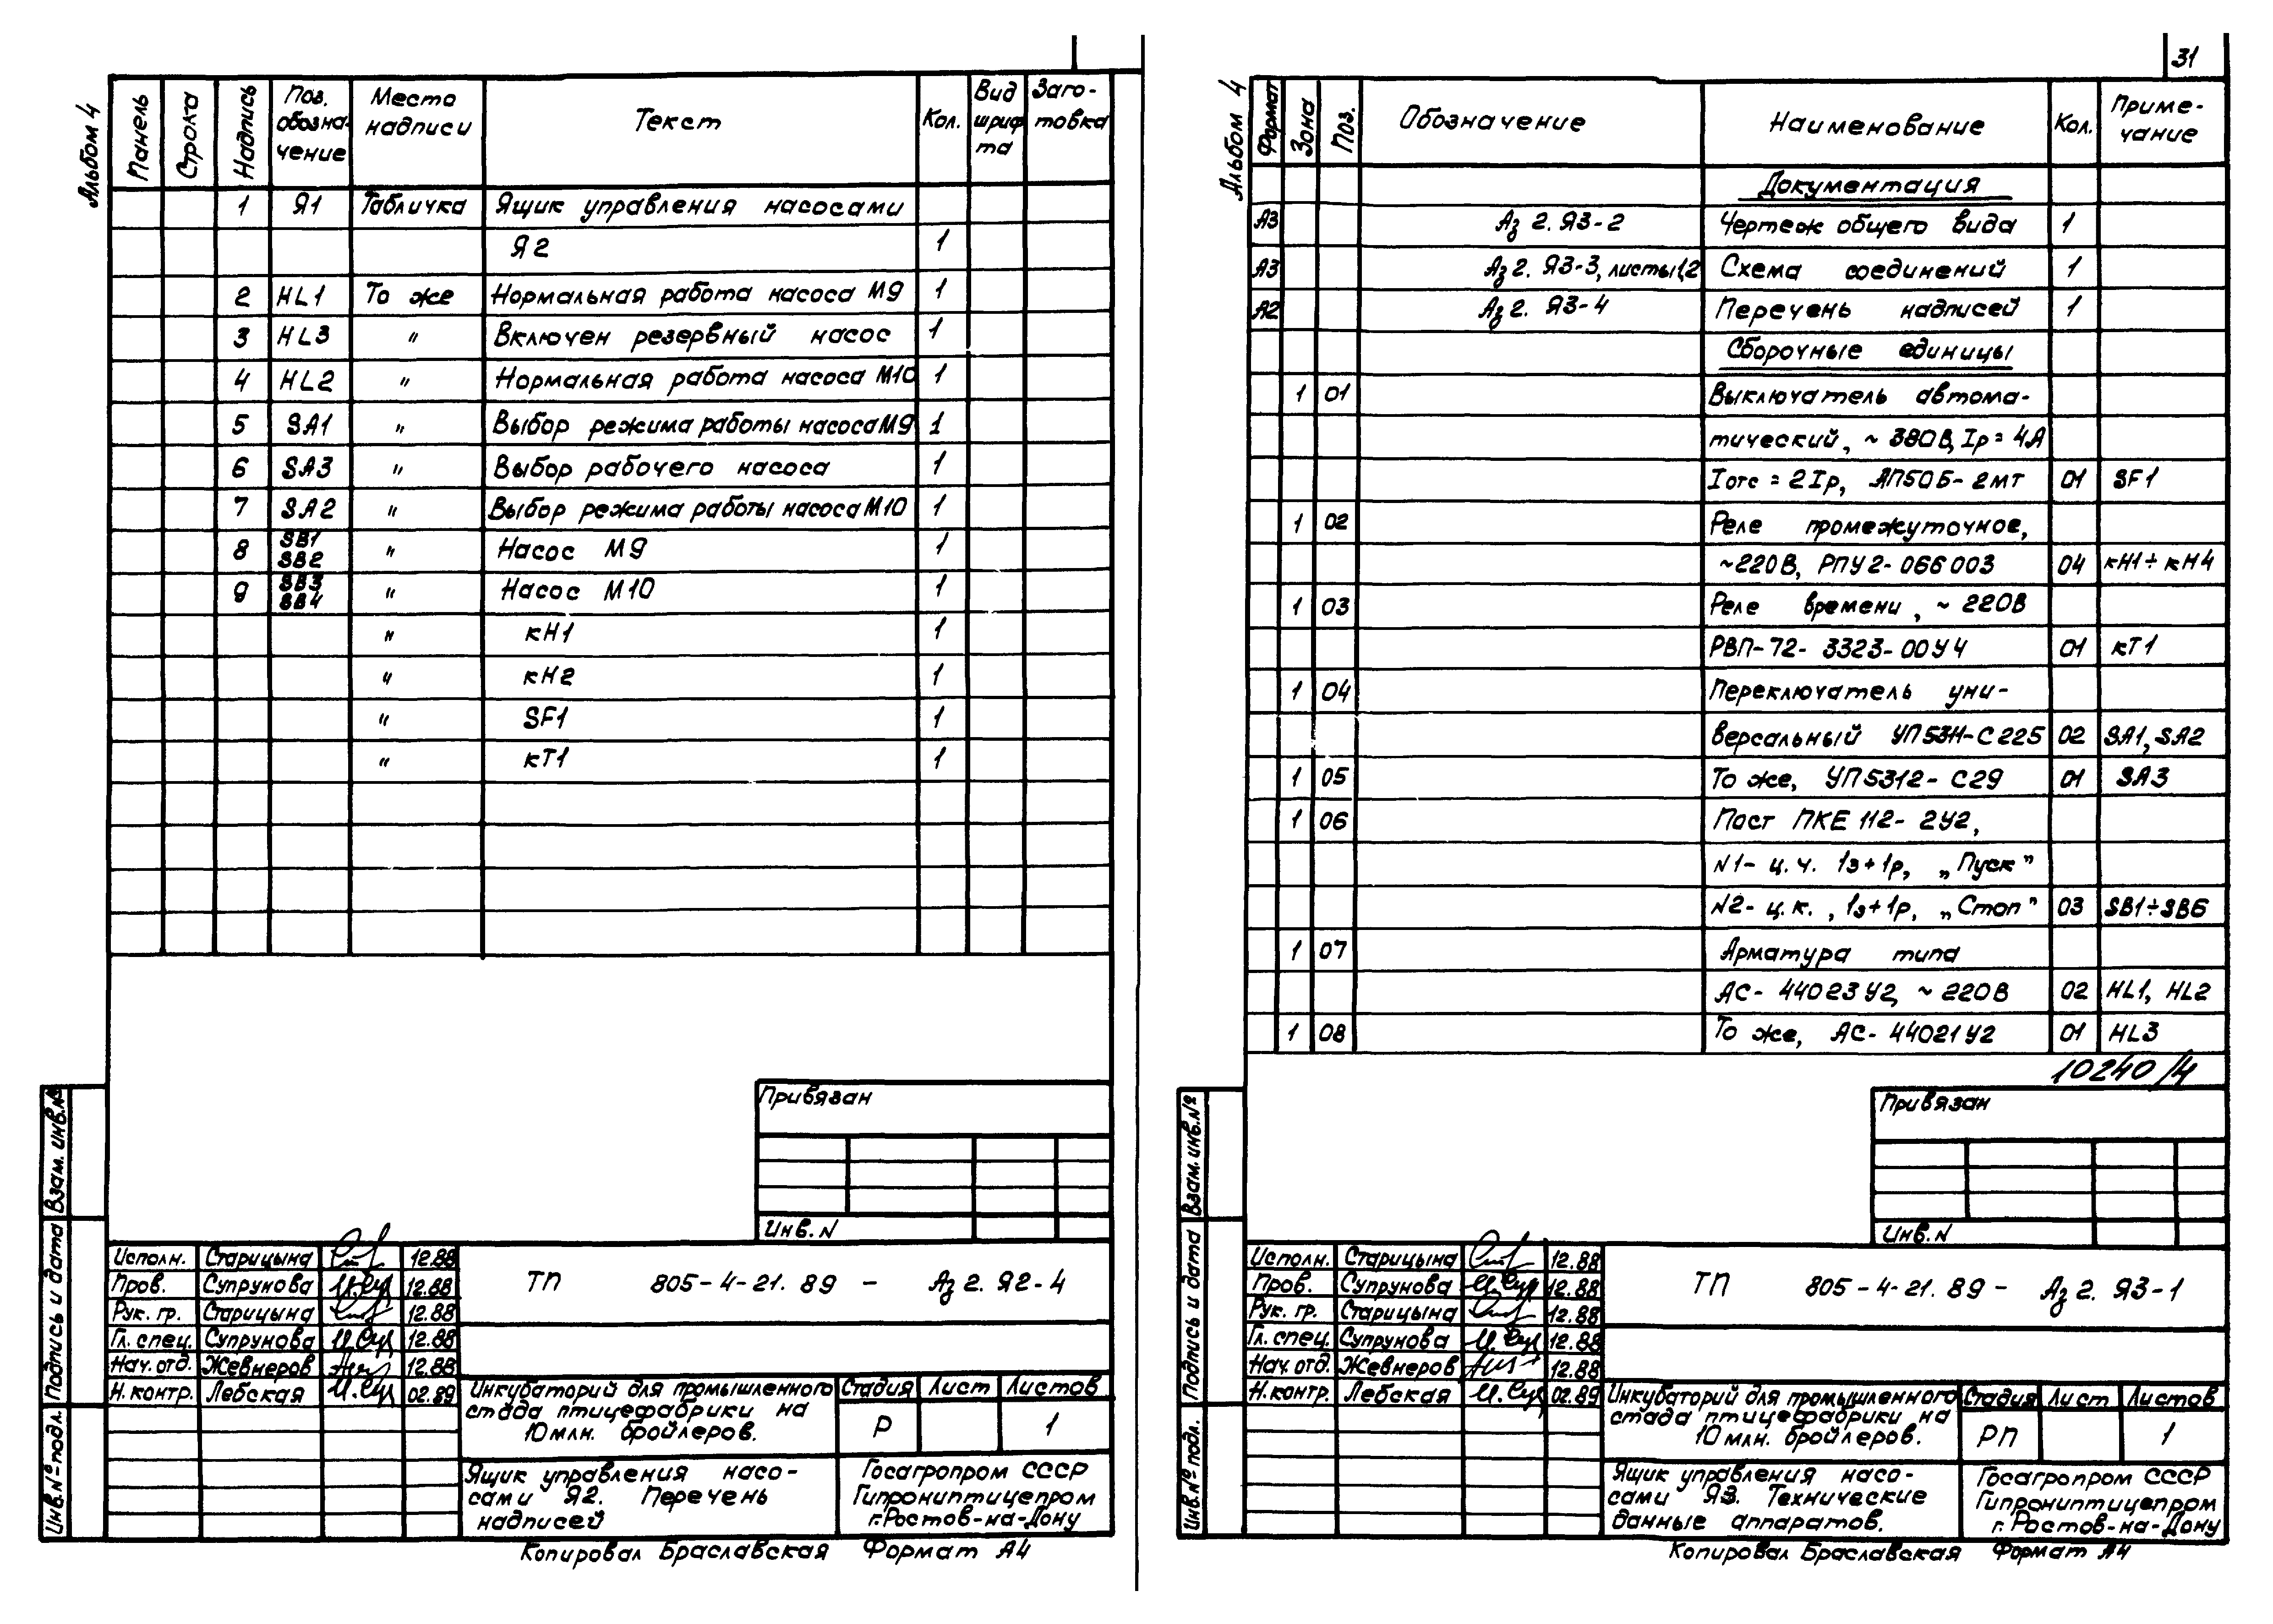 Альбом 4
Панель Строка Надпись Поз. обозна- чение Место надписи Текст Кол. Вид шриф та Заго- товка
1 Я1 Табличка Ящик управления насосами
Я2 1
2 HL1 То же Нормальная работа насоса М9 1
3 HL3 " Включен резервный насос 1
4 HL2 " Нормальная работа насоса М10 1
5 SA1 " Выбор режима работы насоса М9 1
6 SA3 " Выбор рабочего насоса 1
7 SA2 " Выбор режима работы насоса М10 1
8 SB1 SB2 " Насос М9 1
9 SB3 SB4 " Насос М10 1
" кН1 1
" кН2 1
" SF1 1
" кТ1 1
Привязан
Инв. N
Взам. инв.№
Подпись и дата
Инв.№ подл.
Исполн. Старицына 12.88
Пров. Супрунова 12.88
Рук. гр. Старицына 12.88
Гл. спец. Супрунова 12.88
Нач. отд. Жевнеров 12.88
Н. контр. Лебская 02.89
ТП 805-4-21.89 - Аз 2. Я2-4
Инкубаторий для промышленного
стада птицефабрики на
10 млн. бройлеров.
Стадия Лист Листов
Р 1
Ящик управления насо-
сами Я2. Перечень
надписей
Госагропром СССР
Гипрониптицепром
г. Ростов-на-Дону
Копировал Браславская Формат А4
31
Альбом 4
Формат Зона Поз. Обозначение Наименование Кол. Приме- чание
Документация
А3 Аз 2. Я3-2 Чертеж общего вида 1
А3 Аз 2. Я3-3, листы 1,2 Схема соединений 1
А2 Аз 2. Я3-4 Перечень надписей 1
Сборочные единицы
1 01 Выключатель автома-
тический, ~ 380В, Iр = 4А
Iотс = 2Iр, АП50Б-2МТ 01 SF1
1 02 Реле промежуточное,
~220В, РПУ2-066003 04 кН1÷кН4
1 03 Реле времени, ~ 220В
РВП-72-3323-00У4 01 кТ1
1 04 Переключатель уни-
версальный УП5311-С225 02 SA1, SA2
1 05 То же, УП5312-С29 01 SA3
1 06 Пост ПКЕ 112-2У2,
N1- ц. ч. 1з+1р, „Пуск"
N2- ц. к., 1з+1р, „Стоп" 03 SB1÷SB6
1 07 Арматура типа
АС-44023У2, ~ 220В 02 HL1, HL2
1 08 То же, АС-44021У2 01 HL3
10240/4
Привязан
Инв. N
Взам. инв.№
Подпись и дата
Инв.№ подл.
Исполн. Старицына 12.88
Пров. Супрунова 12.88
Рук. гр. Старицына 12.88
Гл. спец. Супрунова 12.88
Нач. отд. Жевнеров 12.88
Н. контр. Лебская 02.89
ТП 805-4-21.89 - Аз 2. Я3-1
Инкубаторий для промышленного
стада птицефабрики на
10 млн. бройлеров.
Стадия Лист Листов
РП 1
Ящик управления насо-
сами Я3. Технические
данные аппаратов.
Госагропром СССР
Гипрониптицепром
г. Ростов-на-Дону
Копировал Браславская Формат А4